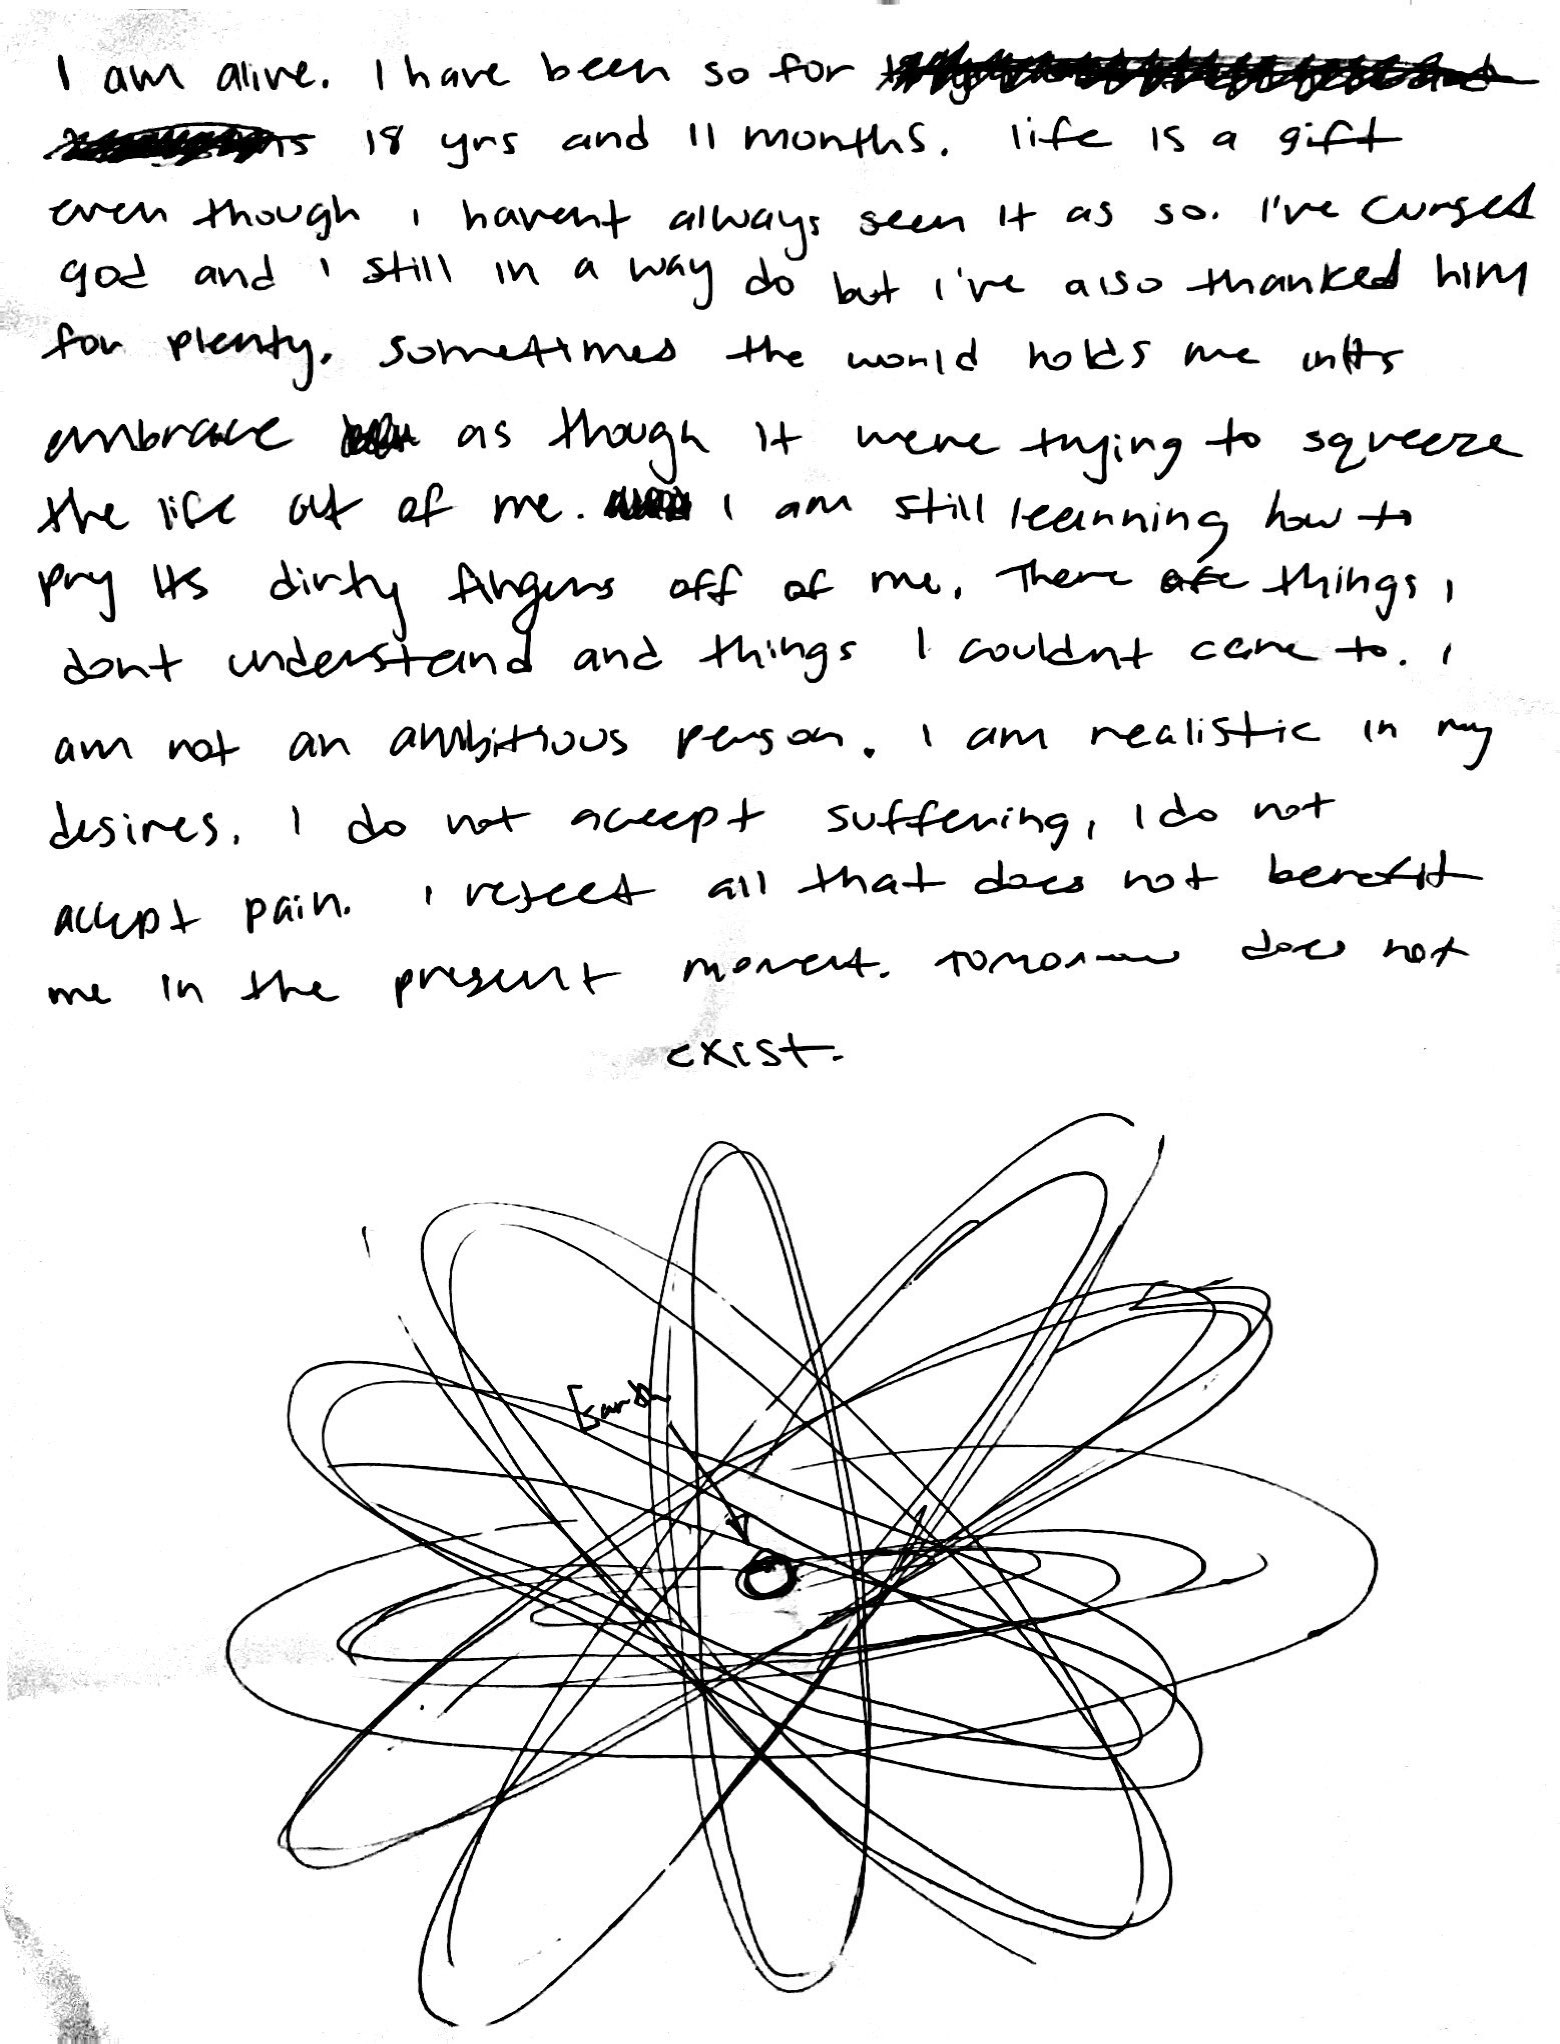 I am alive. I have been so for
18 yrs and 11 months. life is a gift
even though i havent always seen it as so. I've cursed
god and i still in a way do but i've also thanked him
for plenty. sometimes the world holds me in its
embrace as though it were trying to squeeze
the life out of me. I am still learning how to
pry its dirty fingers off of me. There are things i
dont understand and things I couldnt care to. I
am not an ambitious person. I am realistic in my
desires. I do not accept suffering, I do not
accept pain. I reject all that does not benefit
me in the present moment. tomorrow does not
exist.
Earth